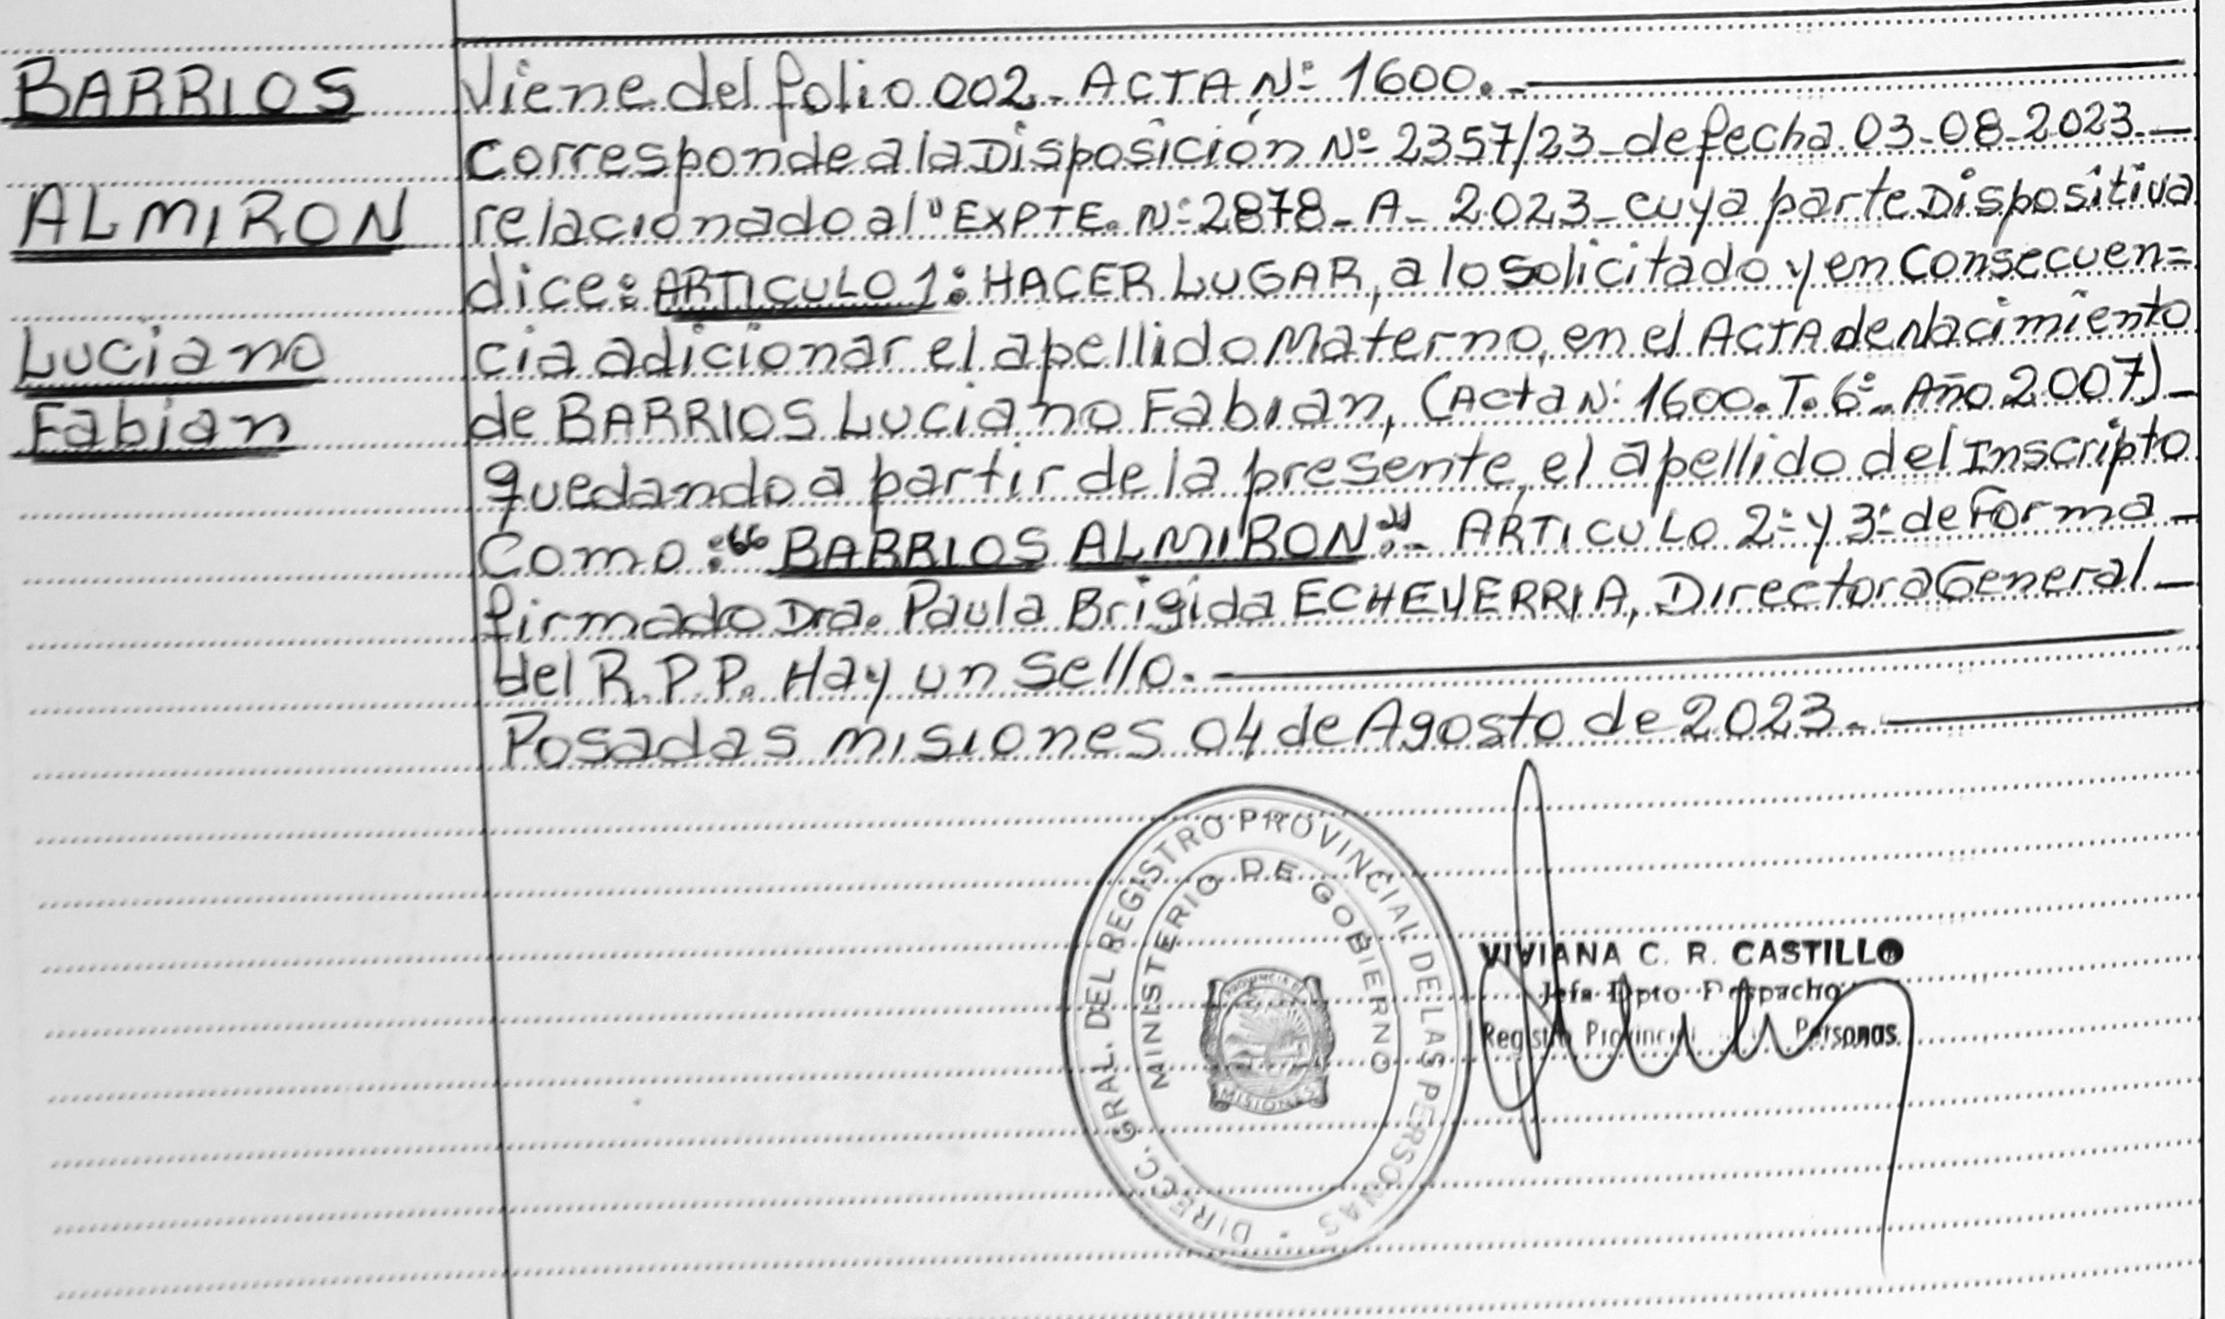 BARRIOS
ALMIRON
Luciano
Fabian
Viene del folio 002 - ACTA Nº 1600.-
Corresponde a la Disposición Nº 2357/23 - de fecha 03-08-2023 -
relacionado al "EXPTE. Nº 2878 - A - 2023 - cuya parte Dispositiva
dice: ARTICULO 1: HACER LUGAR, a lo solicitado y en Consecuen=
cia adicionar el apellido Materno, en el ACTA de Nacimiento
de BARRIOS Luciano Fabian, (Acta Nº 1600. T. 6º - Año 2007) -
quedando a partir de la presente, el apellido del Inscripto
Como: "BARRIOS ALMIRON".- ARTICULO 2º y 3º de Forma -
firmado Dra. Paula Brigida ECHEVERRIA, Directora General -
del R. P. P. Hay un Sello.-
Posadas Misiones 04 de Agosto de 2023.-
DIRECC. GRAL. DEL REGISTRO PROVINCIAL DE LAS PERSONAS
MINISTERIO DE GOBIERNO
PROVINCIA DE
MISIONES
VIVIANA C. R. CASTILLO
Jefa Dpto Despacho
Registro Provincial Personas